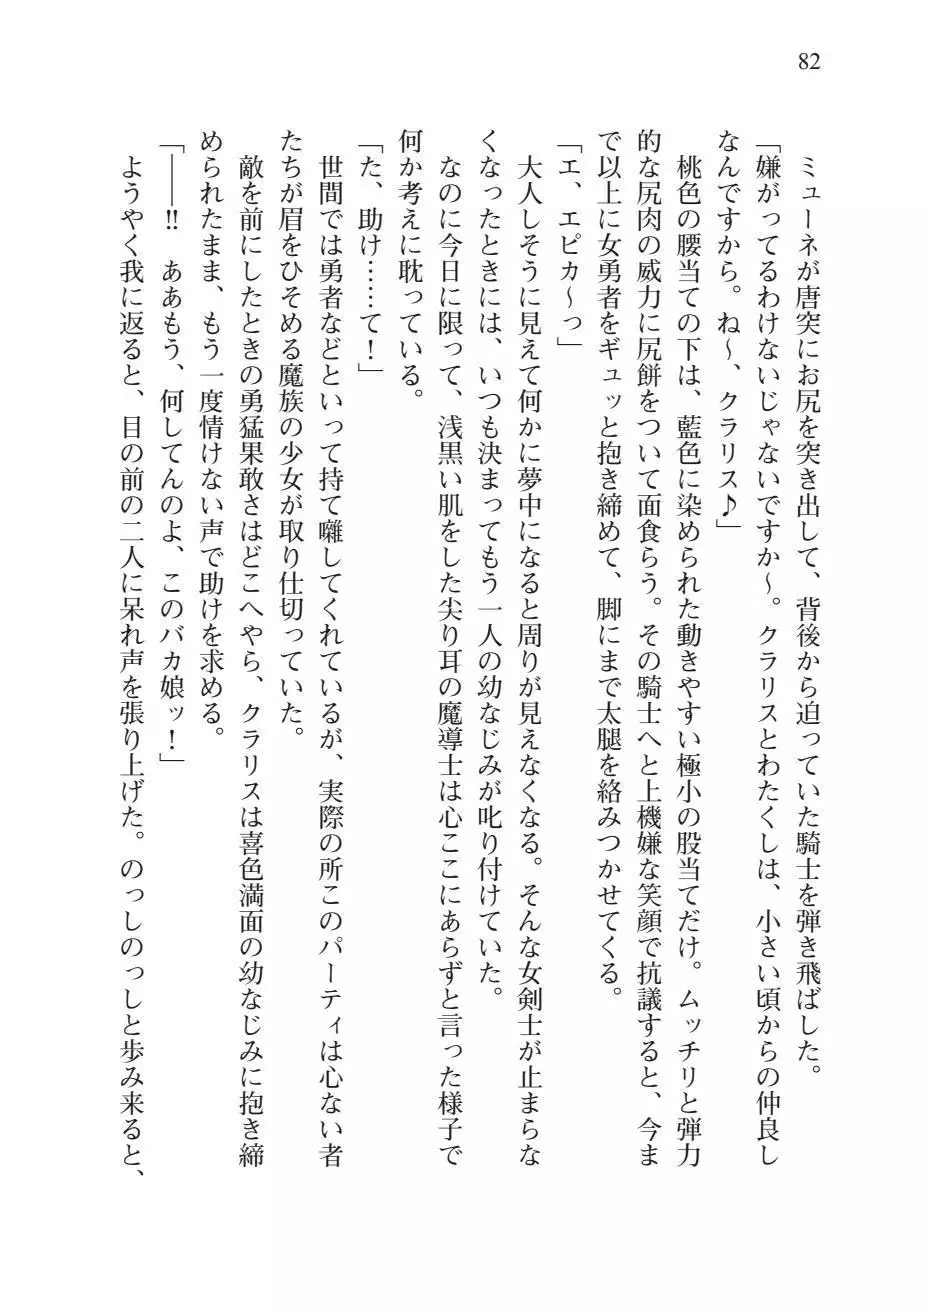 82
　ミューネが唐突にお尻を突き出して、背後から迫っていた騎士を弾き飛ばした。
「嫌がってるわけないじゃないですか～。クラリスとわたくしは、小さい頃からの仲良し
なんですから。ね～、クラリス♪」
　桃色の腰当ての下は、藍色に染められた動きやすい極小の股当てだけ。ムッチリと弾力
的な尻肉の威力に尻餅をついて面食らう。その騎士へと上機嫌な笑顔で抗議すると、今ま
で以上に女勇者をギュッと抱き締めて、脚にまで太腿を絡みつかせてくる。
「エ、エピカ～っ」
　大人しそうに見えて何かに夢中になると周りが見えなくなる。そんな女剣士が止まらな
くなったときには、いつも決まってもう一人の幼なじみが叱り付けていた。
　なのに今日に限って、浅黒い肌をした尖り耳の魔導士は心ここにあらずと言った様子で
何か考えに耽っている。
「た、助け……て！」
　世間では勇者などといって持て囃してくれているが、実際の所このパーティは心ない者
たちが眉をひそめる魔族の少女が取り仕切っていた。
　敵を前にしたときの勇猛果敢さはどこへやら、クラリスは喜色満面の幼なじみに抱き締
められたまま、もう一度情けない声で助けを求める。
「――!!　ああもう、何してんのよ、このバカ娘ッ！」
　ようやく我に返ると、目の前の二人に呆れ声を張り上げた。のっしのっしと歩み来ると、